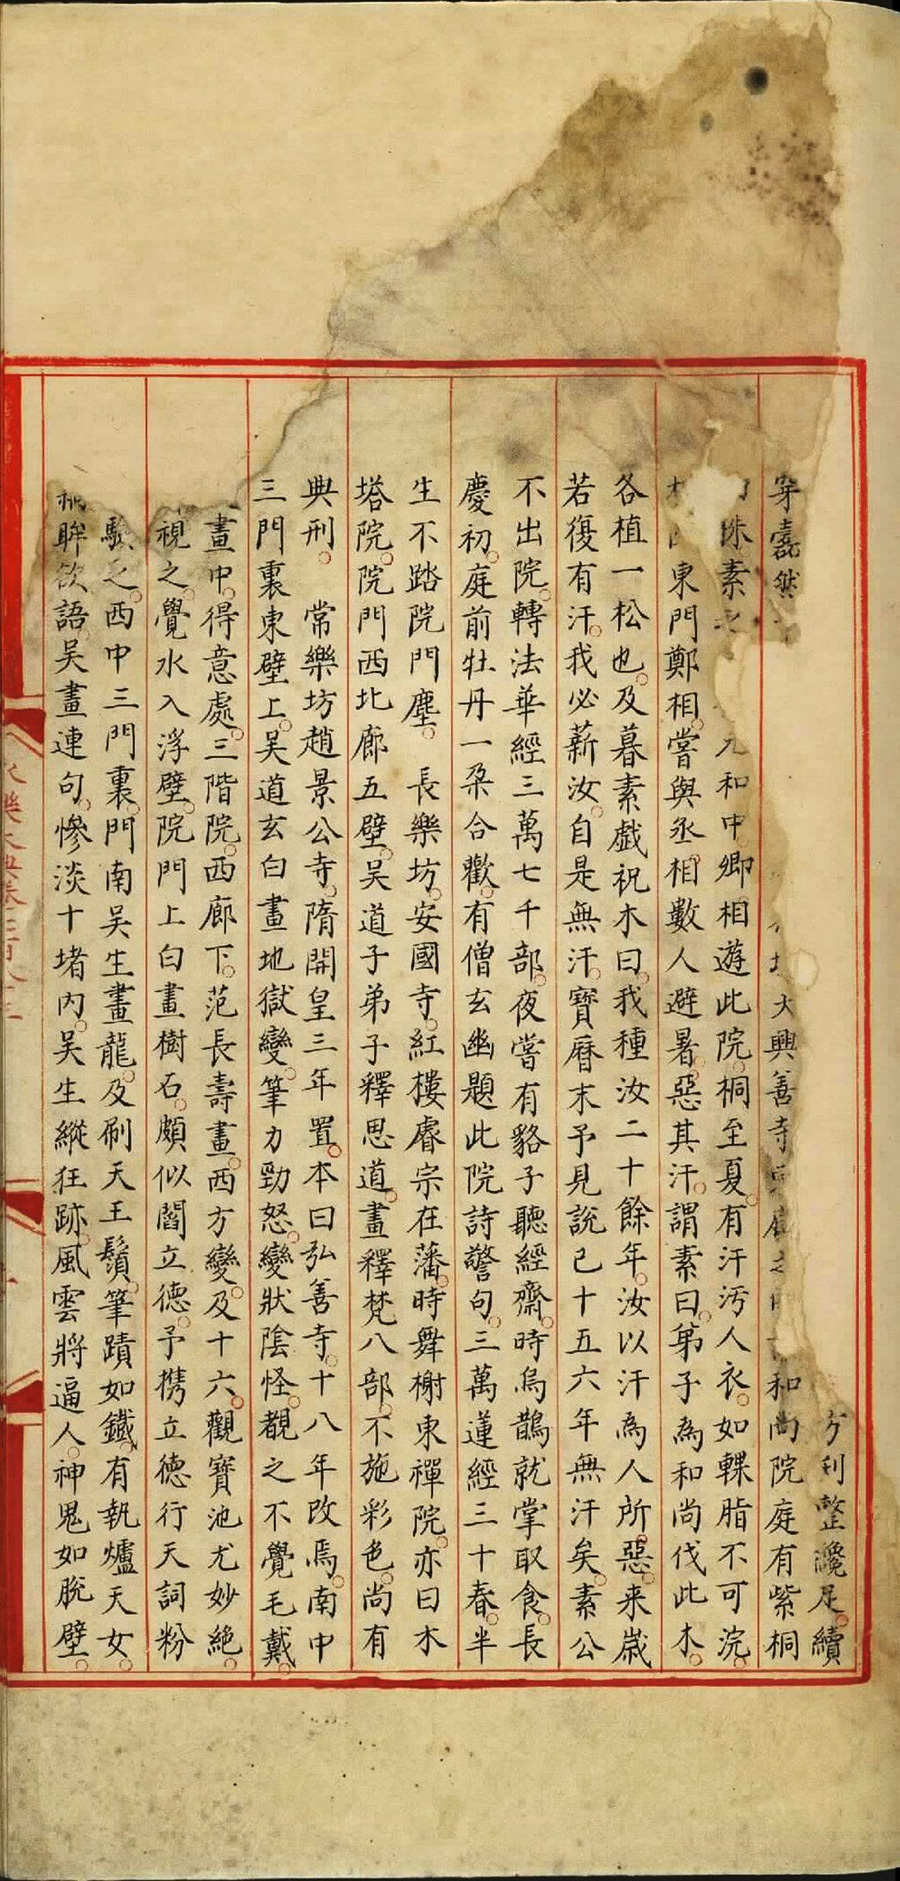 兮利整纔足續
穿靈然大興善寺和尚院庭有紫桐
殊素元和中卿相遊此院桐至夏有汗污人衣如輠脂不可浣
東門鄭相嘗與丞相數人避暑惡其汗謂素曰弟子為和尚伐此木
各植一松也及暮素戲祝木曰我種汝二十餘年汝以汗為人所惡来歲
若復有汗我必薪汝自是無汗寶曆末予見說已十五六年無汗矣素公
不出院轉法華經三萬七千部夜嘗有貉子聽經齋時烏鵲就掌取食長
慶初庭前牡丹一朶合歡有僧玄幽題此院詩警句三萬蓮經三十春半
生不踏院門塵 長樂坊安國寺紅樓睿宗在藩時舞榭東禪院亦曰木
塔院院門西北廊五壁吴道子弟子釋思道畫釋梵八部不施彩色尚有
典刑 常樂坊趙景公寺隋開皇三年置本曰弘善寺十八年改焉南中
三門裏東壁上吴道玄白畫地獄變筆力勁怒變狀陰怪覩之不覺毛戴
畫中得意處三階院西廊下范長壽畫西方變及十六觀寶池尤妙絶
視之覺水入浮壁院門上白畫樹石頗似閻立德予携立德行天詞粉
驗之西中三門裏門南吴生畫龍及刷天王鬚筆蹟如鐵有執爐天女
眸欲語吴畫連句慘淡十堵内吴生縱狂跡風雲將逼人神鬼如脱壁